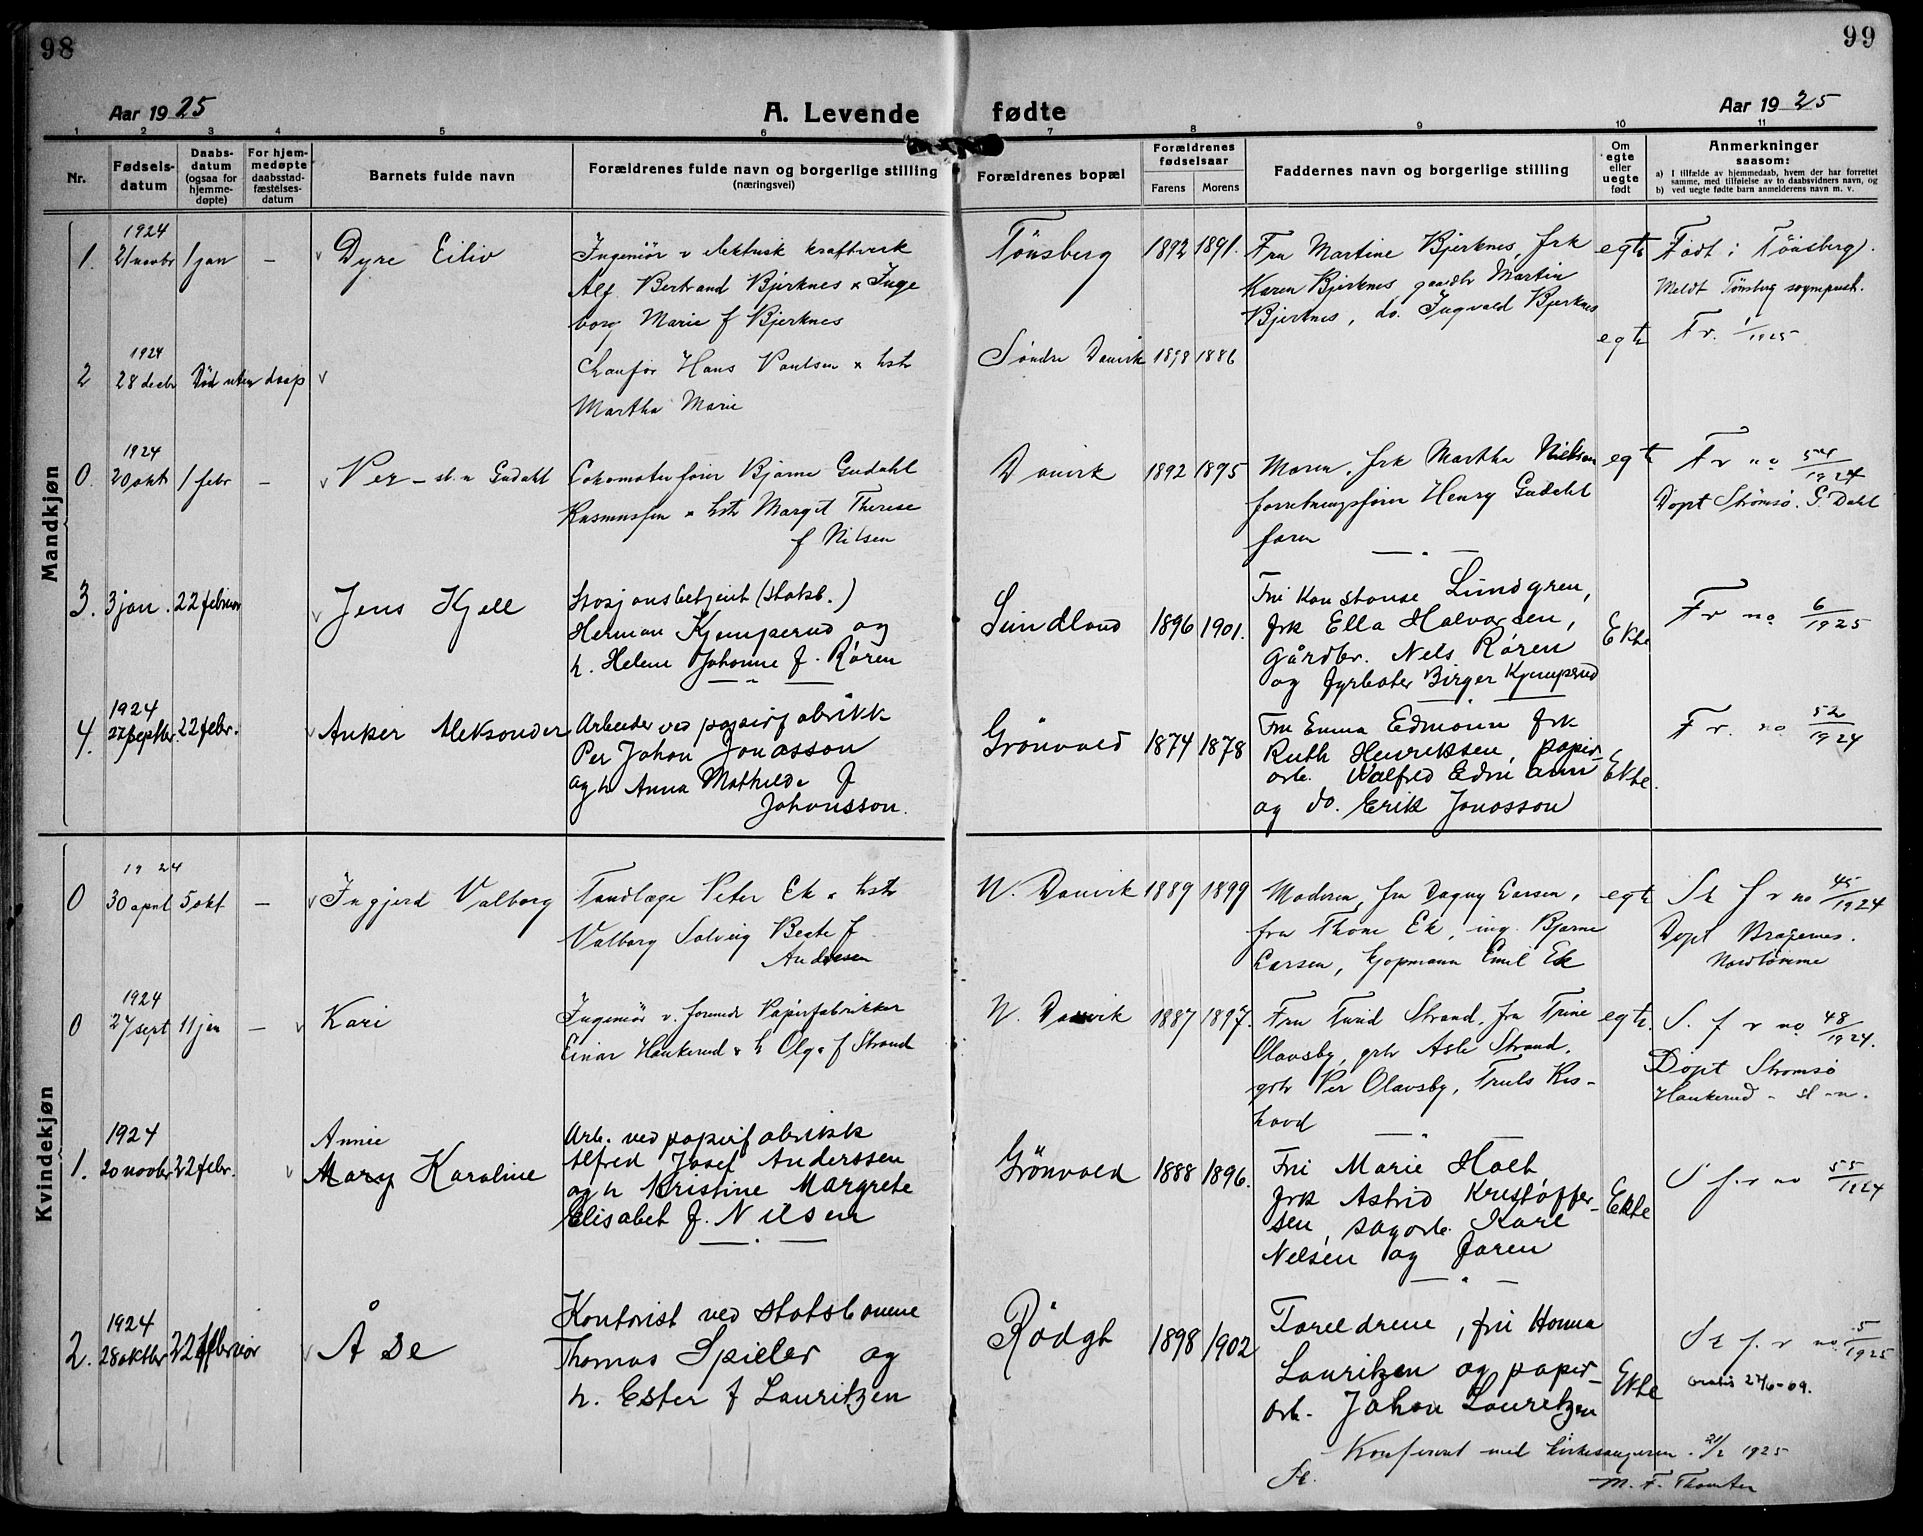 98
99
Aar 1925
A. Levende fødte
Aar 1925
1 2 3 4 5 6 7 8 9 10 11
Nr.
Fødsels-
datum
Daabs-
datum
(ogsaa for
hjemme-
døpte)
For hjem-
medøpte
daabsstad-
fæstelses-
datum
Barnets fulde navn
Forældrenes fulde navn og borgerlige stilling
(næringsvei)
Forældrenes bopæl
Forældrenes
fødselsaar
Farens Morens
Faddernes navn og borgerlige stilling
Om
egte
eller
uegte
født
Anmerkninger
saasom:
a) I tilfælde av hjemmedaab, hvem der har forrettet
samme, med tilføielse av to daabsvidners navn, og
b) ved uegte fødte barn anmelderens navn m. v.
Mandkjøn
1924
1. 21 novbr 1 jan – Dyre Eiliv
Ingeniør v elektrisk kraftverk
Alf Bertrand Bjerknes & Inge
borg Marie f Bjerknes
Tönsberg 1892 1891.
Fru Martine Bjerknes, frk
Karen Bjerknes gaardbr Martin
Bjerknes, do. Ingvald Bjerknes
egte
Født i Tönsberg.
Meldt Tönsberg
1924
2 28 decbr Död uten daap
Chauför Hans Paulsen & hstr
Martha Marie
Söndre Danvik 1898 1886
egte
Fr. 1/1925
1924
0. 20 okt 1 febr – Per – sl.n Gudahl
Lokomotivförer Bjarne Gudahl
Rasmussen & hstr Margit Therese
f Nilsen
Danvik 1892 1895
Moren, frk Martha Nielsen
forretningsförer Henry Gudahl
faren
egte
Fr no 54/1924
Döpt Strömsö. G. Dahl
3. 3 jan. 22 februar Jens Kjell
Stasjonsbetjent (statsb.)
Herman Kjemperud og
h. Helene Johanne f. Røren
Sundland 1896 1901.
Fru Konstanse Lundgren,
frk Ella Halvorsen,
gårdbr. Nels Røren
og fyrbøter Birger Kjemperud
Ekte
Fr no 6/1925
1924
4. 27 septbr. 22 febr. Anker Aleksander
Arbeider ved papirfabrikk
Per Johan Jonasson
og h Anna Mathilde f
Johansson.
Grönvold 1874 1878
Fru Emma Edmann frk
Ruth Henriksen, papir-
arb. Valfred Edmann
og do. Erik Jonasson
Ekte.
Fr. no 52/1924
Kvindekjøn
1924
0 30 april 5 okt – Ingjerd Valborg
Tandlæge Peter Ek & hstr
Valborg Solveig Beate f
Andresen
N. Danvik 1889 1899
Moderen, fru Dagny Larsen,
fru Thone Ek, ing. Bjarne
Larsen, kjøpmann Emil Ek
egte
Sk f r no 45/1924
Döpt Bragernes.
1924
0 27 sept 11 jan – Kari
Ingeniör v. forenede Papirfabrikker
Einar Hankerud & h Olga f Strand
N. Danvik 1887 1897.
Fru Turid Strand, fru Trine
Olavsby, grbr Asle Strand,
grbr Per Olavsby, Truls Ris-
hovd
egte.
S. f r no 48/1924.
Döpt Strømsö
Hankerud – sl–n.
1924
Annie
1. 20 novbr 22 febr. Mary Karoline
Arb. ved papirfabrikk
Alfred Josef Anderssen
og h Kristine Margrete
Elisabet f. Nilsen
Grönvold 1888 1896.
Fru Marie Holt
frk Astrid Kristoffer-
sen, sagarb. Kare
Nelsen og faren
Ekte
S f. r no 55/1924
1924
2. 28 oktbr 22 februar Åse
Kontorist ved statsbanene
Thomas Spieler og
h. Ester f Lauritzen
Rödgt 1898 1902
Foreldrene, fru Hanna
Lauritzen og papir-
arb. Johan Lauritzen
Ekte
Sk f. r no. 5/1925
gratis 27/6-09.
Konferert med kirkesangeren. 21/2 1925
M. F. Thomter